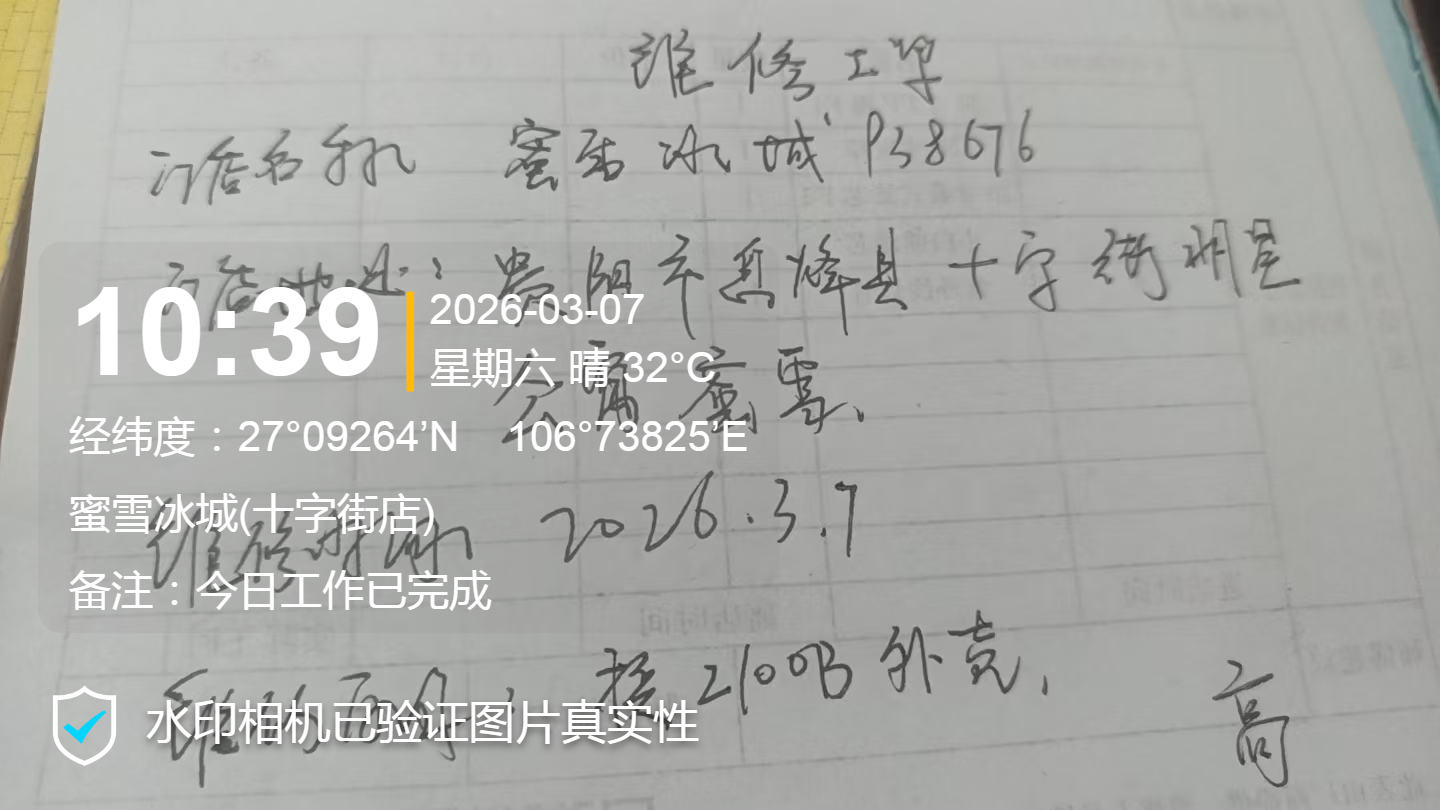 维修工单
门店名称 蜜雪冰城 P38676
门店地址：贵阳市息烽县十字街明星
蜜雪.
10:39
2026-03-07
星期六 晴 32°C
经纬度：27°09264’N 106°73825’E
蜜雪冰城(十字街店)
维修时间 2026.3.7
备注：今日工作已完成
换2100B外壳.
高
水印相机已验证图片真实性